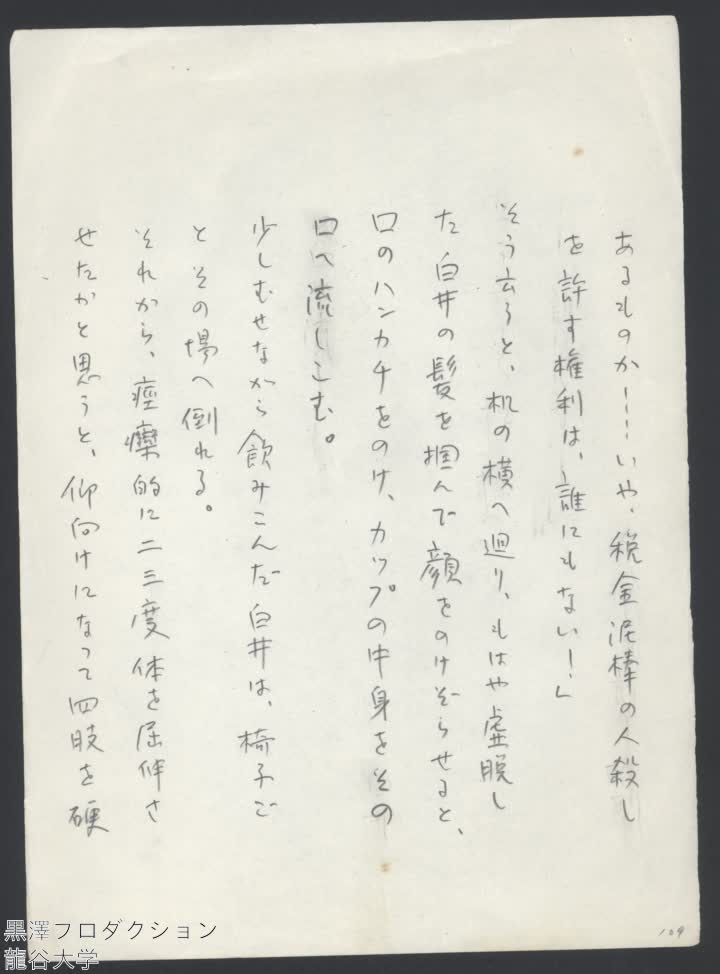 あるものか！……いや、税金泥棒の人殺し
を許す権利は、誰にもない！」
そう云うと、机の横へ廻り、もはや虚脱し
た白井の髪を掴んで顔をのけぞらせると、
口のハンカチをのけ、カップの中身をその
口へ流しこむ。
少しむせながら飲みこんだ白井は、椅子ご
とその場へ倒れる。
それから、痙攣的に二三度体を屈伸さ
せたかと思うと、仰向けになって四肢を硬
109
黒澤フロダクション
龍谷大学